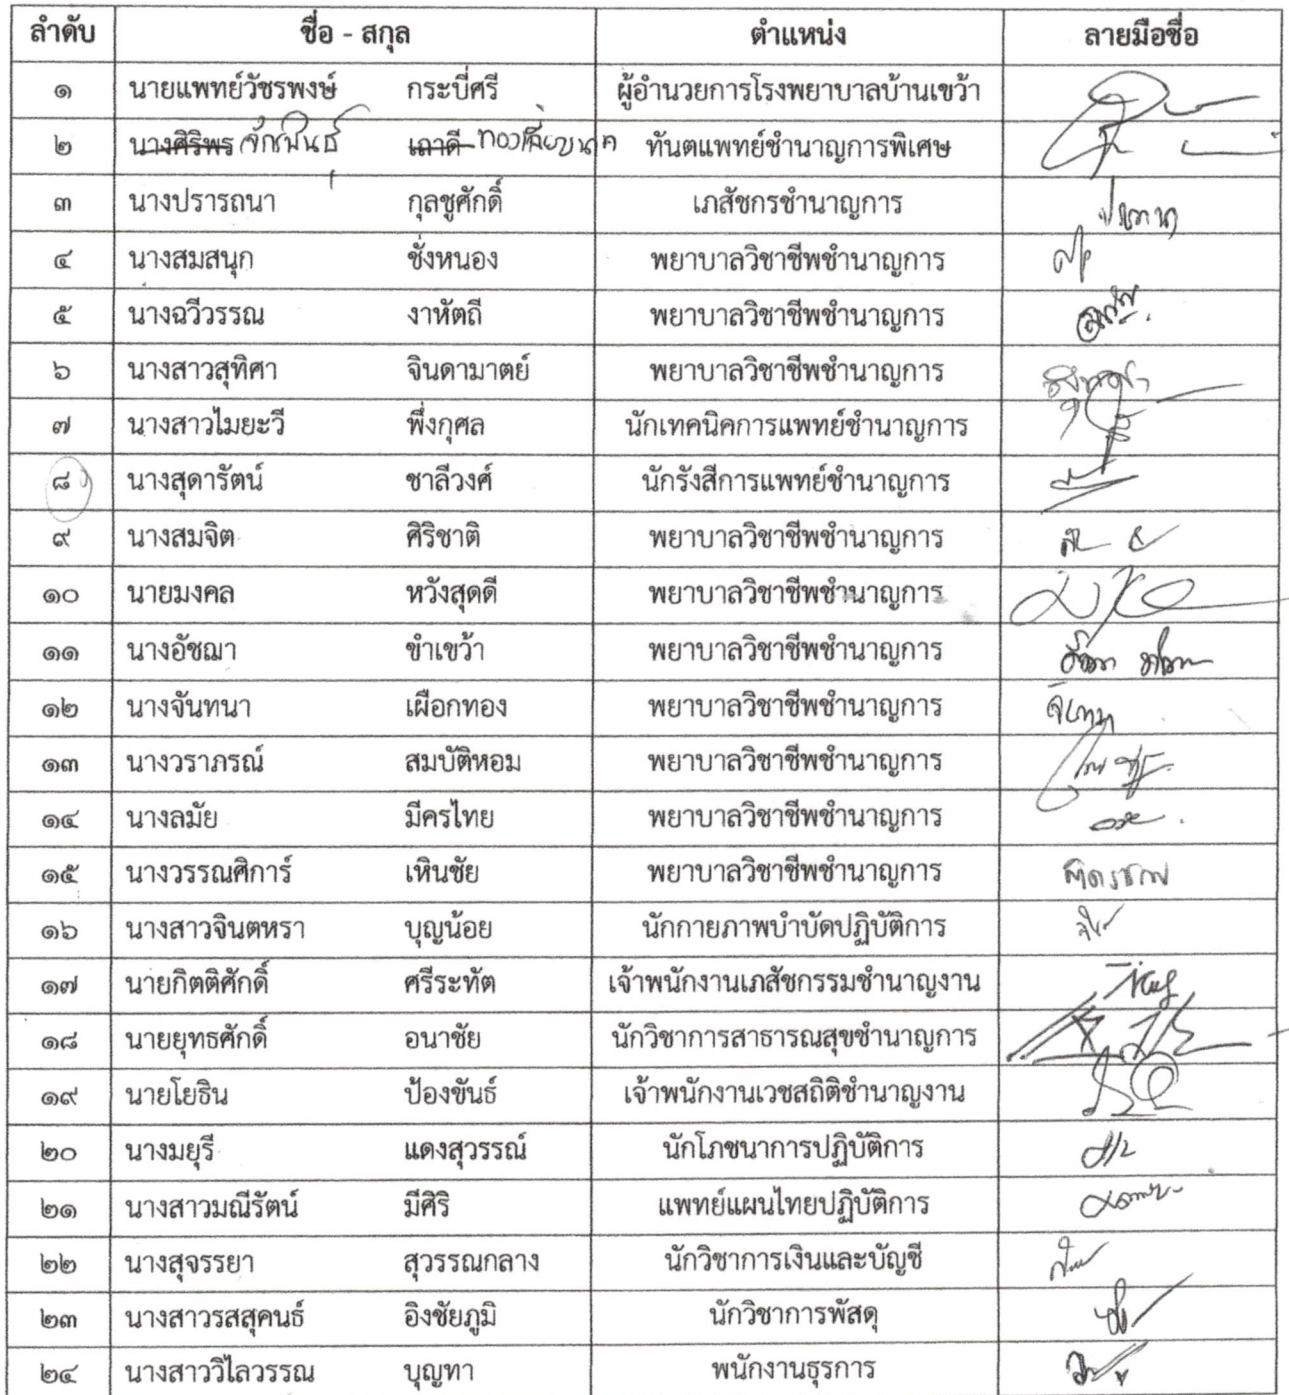 ลำดับ ชื่อ - สกุล ตำแหน่ง ลายมือชื่อ
๑ นายแพทย์วัชรพงษ์ กระบี่ศรี ผู้อำนวยการโรงพยาบาลบ้านเขว้า
๒ นางศิริพร เถาดี ทันตแพทย์ชำนาญการพิเศษ
๓ นางปรารถนา กุลชูศักดิ์ เภสัชกรชำนาญการ
๔ นางสมสนุก ชั่งหนอง พยาบาลวิชาชีพชำนาญการ
๕ นางฉวีวรรณ งาหัตถี พยาบาลวิชาชีพชำนาญการ
๖ นางสาวสุทิศา จินดามาตย์ พยาบาลวิชาชีพชำนาญการ
๗ นางสาวไมยะวี พึ่งกุศล นักเทคนิคการแพทย์ชำนาญการ
๘ นางสุดารัตน์ ชาลีวงศ์ นักรังสีการแพทย์ชำนาญการ
๙ นางสมจิต ศิริชาติ พยาบาลวิชาชีพชำนาญการ
๑๐ นายมงคล หวังสุดดี พยาบาลวิชาชีพชำนาญการ
๑๑ นางอัชฌา ขำเขว้า พยาบาลวิชาชีพชำนาญการ
๑๒ นางจันทนา เผือกทอง พยาบาลวิชาชีพชำนาญการ
๑๓ นางวราภรณ์ สมบัติหอม พยาบาลวิชาชีพชำนาญการ
๑๔ นางลมัย มีครไทย พยาบาลวิชาชีพชำนาญการ
๑๕ นางวรรณศิการ์ เหินชัย พยาบาลวิชาชีพชำนาญการ
๑๖ นางสาวจินตหรา บุญน้อย นักกายภาพบำบัดปฏิบัติการ
๑๗ นายกิตติศักดิ์ ศรีระทัต เจ้าพนักงานเภสัชกรรมชำนาญงาน
๑๘ นายยุทธศักดิ์ อนาชัย นักวิชาการสาธารณสุขชำนาญการ
๑๙ นายโยธิน ป้องขันธ์ เจ้าพนักงานเวชสถิติชำนาญงาน
๒๐ นางมยุรี แดงสุวรรณ์ นักโภชนาการปฏิบัติการ
๒๑ นางสาวมณีรัตน์ มีศิริ แพทย์แผนไทยปฏิบัติการ
๒๒ นางสุจรรยา สุวรรณกลาง นักวิชาการเงินและบัญชี
๒๓ นางสาวรสสุคนธ์ อิงชัยภูมิ นักวิชาการพัสดุ
๒๔ นางสาววิไลวรรณ บุญทา พนักงานธุรการ